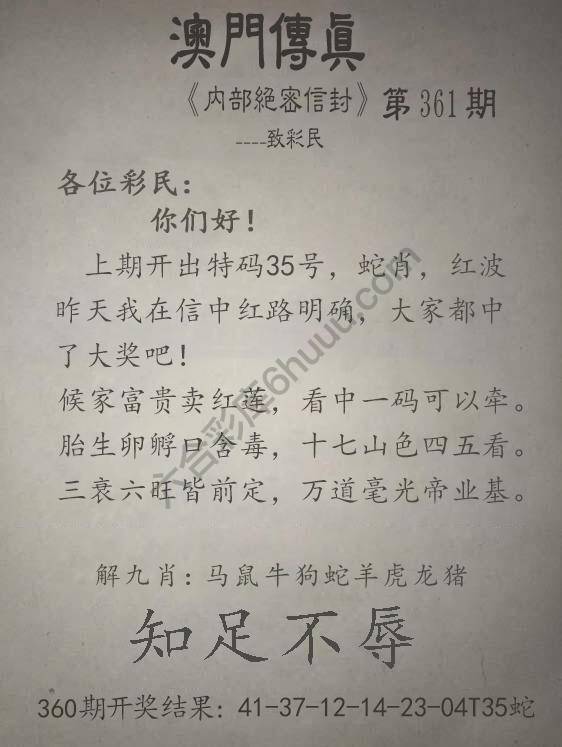 澳門傳眞
《内部絕密信封》第361期
----致彩民
各位彩民：
你们好！
上期开出特码35号，蛇肖，红波
昨天我在信中红路明确，大家都中
了大奖吧！
候家富贵卖红莲，看中一码可以牵。
胎生卵孵口含毒，十七山色四五看。
三衰六旺皆前定，万道毫光帝业基。
解九肖：马鼠牛狗蛇羊虎龙猪
知足不辱
360期开奖结果：41-37-12-14-23-04T35蛇
六合彩库6huuu.com